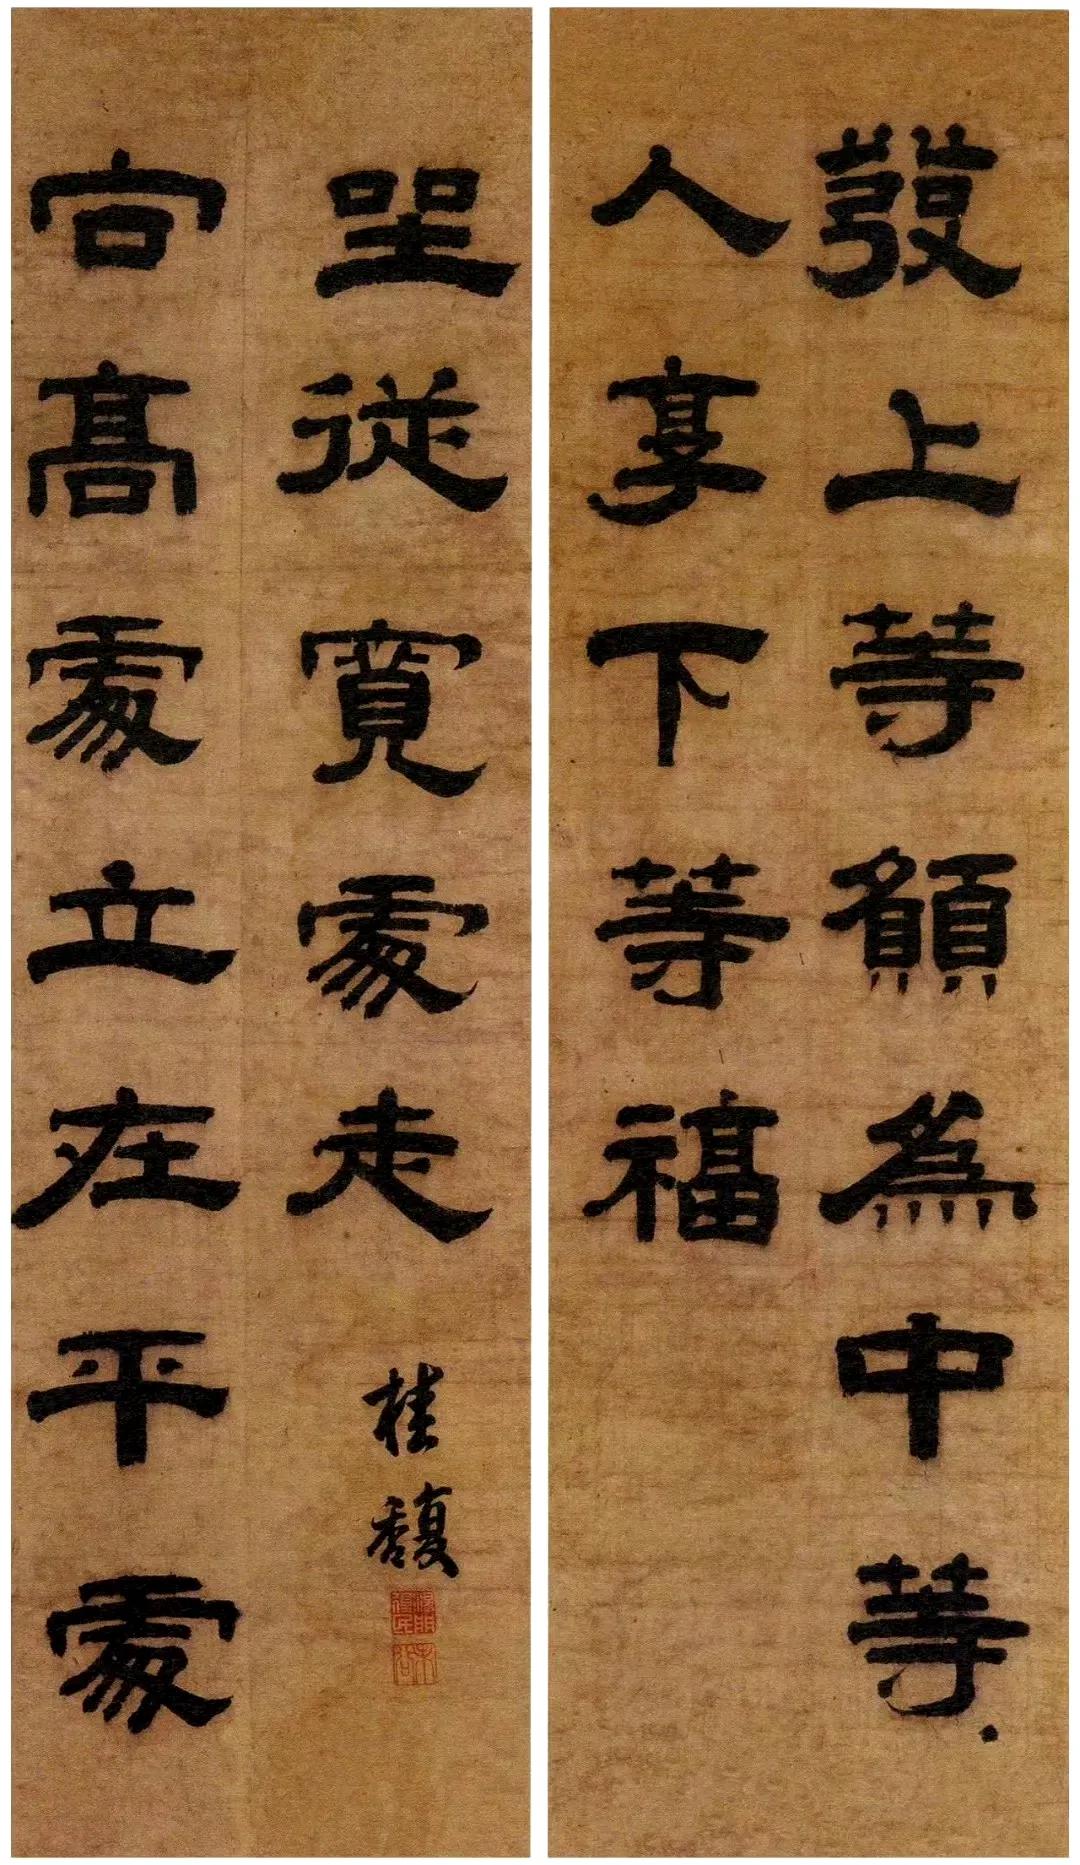 發上等願為中等
人享下等福
向高處立在平處
坐從寬處走
桂馥
未谷